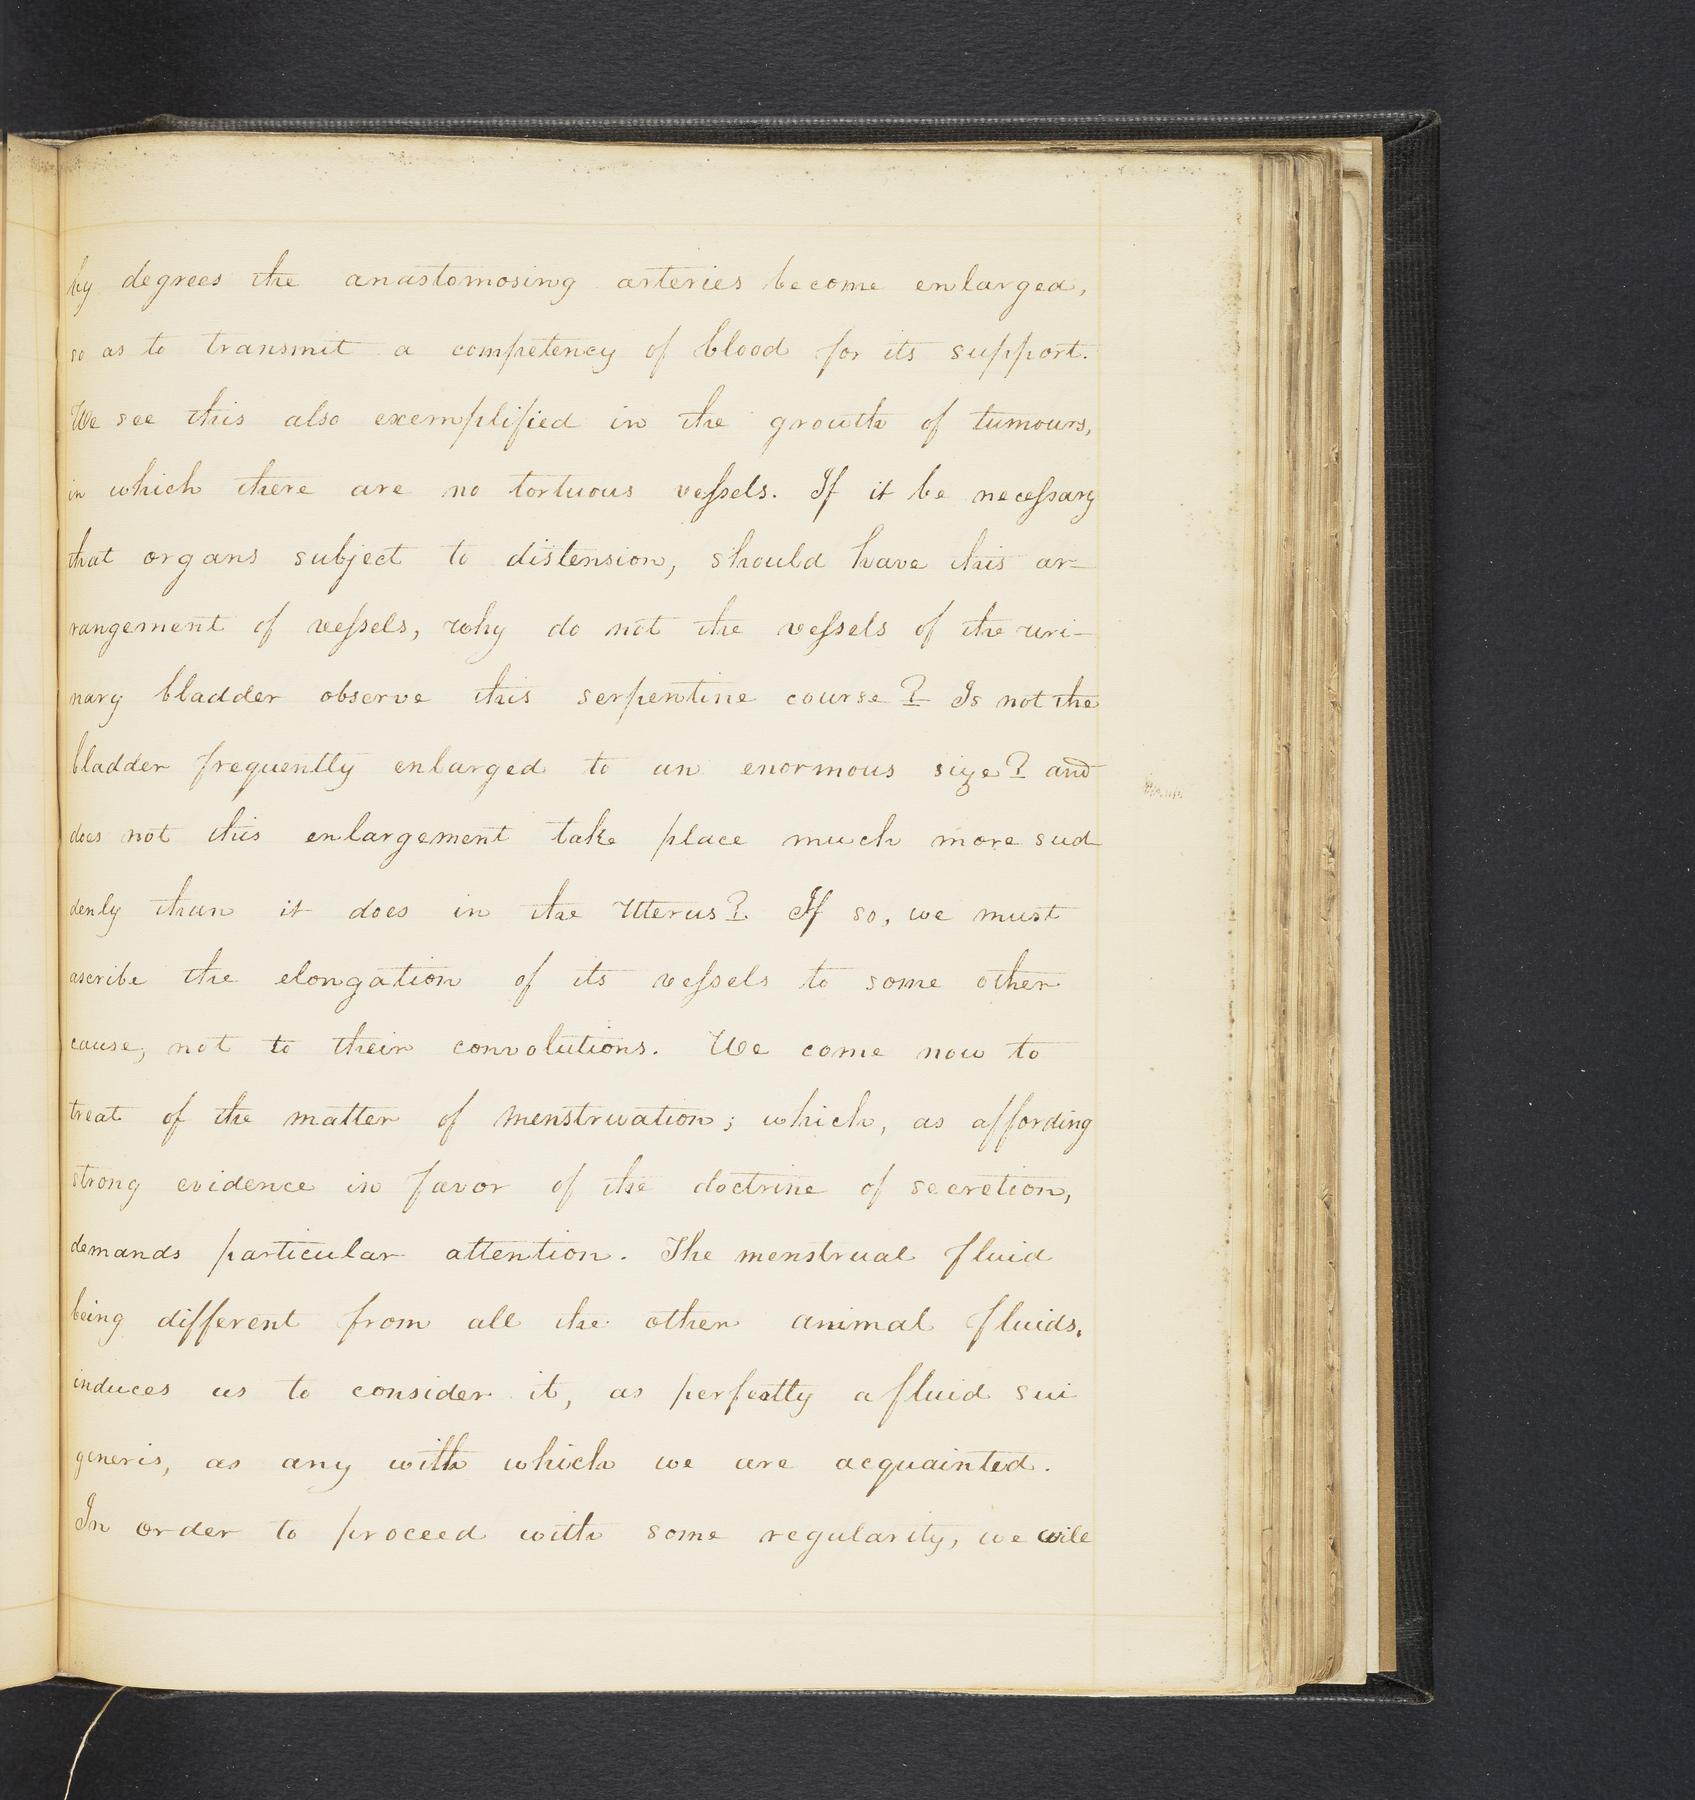 by degrees the anastomosing arteries become enlarged,
so as to transmit a competency of blood for its support.
We see this also exemplified in the growth of tumours,
in which there are no tortuous veſsels. If it be neceſsary
that organs subject to distension, should have this ar-
rangement of veſsels, why do not the veſsels of the uri-
nary bladder observe this serpentine course? Is not the
bladder frequently enlarged to an enormous size? and
does not this enlargement take place much more sud
denly than it does in the Uterus? If so, we must
ascribe the elongation of its veſsels to some other
cause, not to their convolutions. We come now to
treat of the matter of menstruation; which, as affording
strong evidence in favor of the doctrine of secretion,
demands particular attention. The menstrual fluid
being different from all the other animal fluids,
induces us to consider it, as perfectly a fluid sui
generis, as any with which we are acquainted.
In order to proceed with some regularity, we will